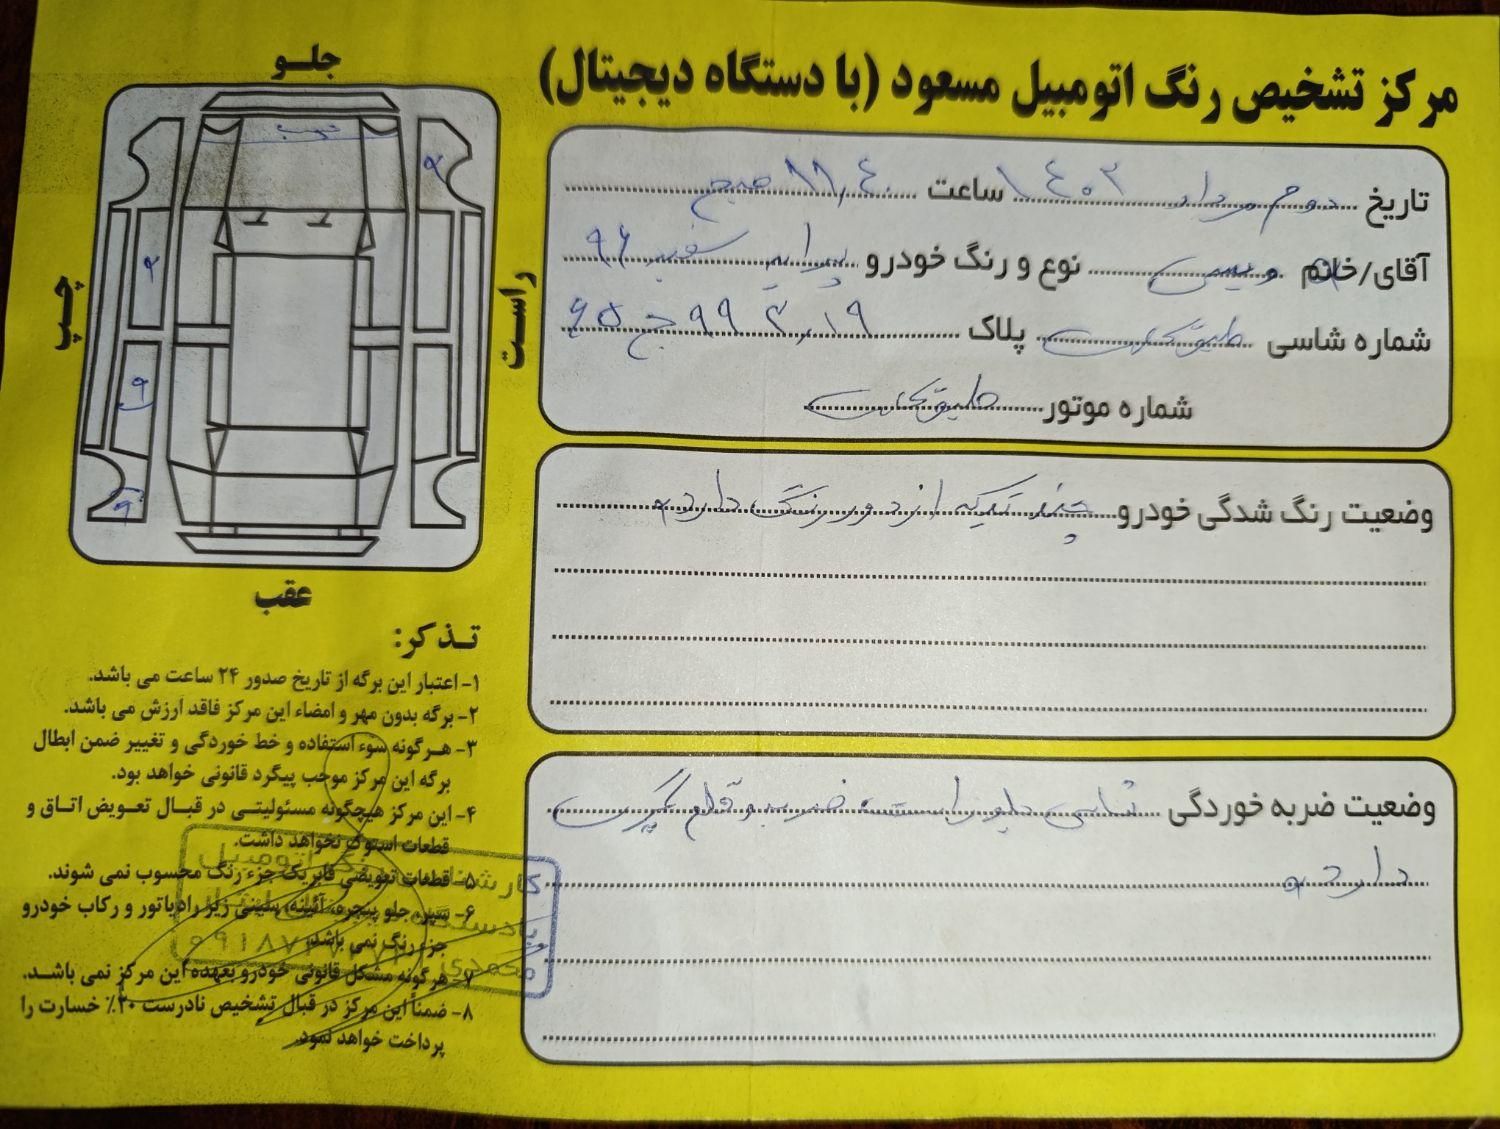 مرکز تشخیص رنگ اتومبیل مسعود (با دستگاه دیجیتال)
تاریخ دوم مرداد ۱۴۰۳ ساعت ۱۱,۴۰ صبح
آقای/خانم ویسی نوع و رنگ خودرو پراید سفید ۹۶
شماره شاسی پلاک ۱۹
شماره موتور
وضعیت رنگ شدگی خودرو چند تیکه از دور رنگ دارد
وضعیت ضربه خوردگی جلو راست ضربه و قلم گیری
دارد
جلـو
چـپ
راسـت
عقب
تـذکر:
۱- اعتبار این برگه از تاریخ صدور ۲۴ ساعت می باشد.
۲- برگه بدون مهر و امضاء این مرکز فاقد ارزش می باشد.
۳- هـرگونه سوء استفاده و خط خوردگی و تغییر ضمن ابطال
برگه این مرکز موجب پیگرد قانونی خواهد بود.
۴- این مرکز هیچگونه مسئولیتـی در قبـال تعـویض اتـاق و
قطعات استوک نخواهد داشت.
۵- قطعات تعویضی فابریک جزء رنگ محسوب نمی شوند.
۶- سپر، جلو پنجره، آئینه، سینی زیر رادیاتور و رکاب خودرو
جزء رنگ نمی باشد.
۷- هرگونه مشکل قانونی خودرو بعهده این مرکز نمی باشـد.
۸- ضمناً این مرکز در قبال تشخیص نادرست ۲۰٪ خسارت را
پرداخت خواهد نمود.
اتومبیل
محمدی